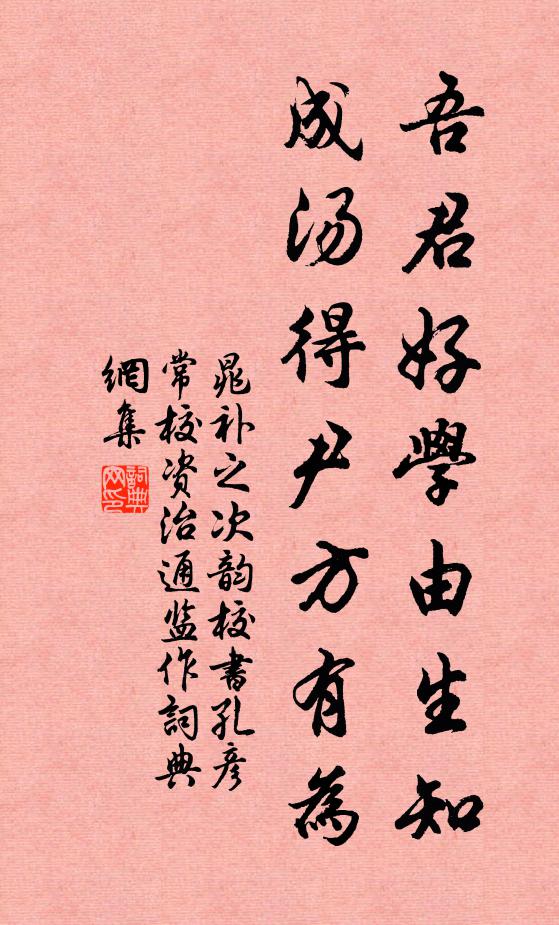 吾君好學由生知
成汤得尹方有為
晁补之次韵校書孔彦
常校资治通监作詞典
網集
詞典网印